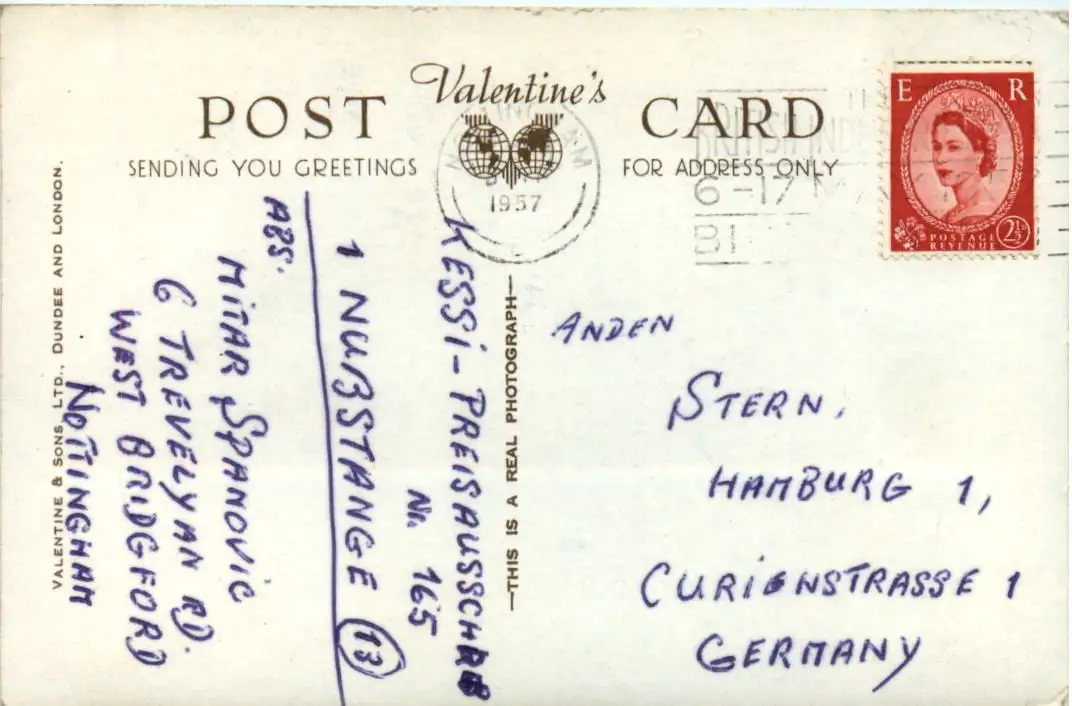 Valentine's
POST CARD
SENDING YOU GREETINGS
FOR ADDRESS ONLY
1957
BRITISH INDU
6-17 MAY
E R
POSTAGE
REVENUE
2½D
KESSI-PREISAUSSCHR
Nr. 165
1 NUßSTANGE 13
ABS.
MITAR SPANOVIC
6 TREVELYAN RD.
WEST BRIDGFORD
NOTTINGHAM
VALENTINE & SONS LTD., DUNDEE AND LONDON.
—THIS IS A REAL PHOTOGRAPH—
ANDEN
STERN,
HAMBURG 1,
CURIENSTRASSE 1
GERMANY